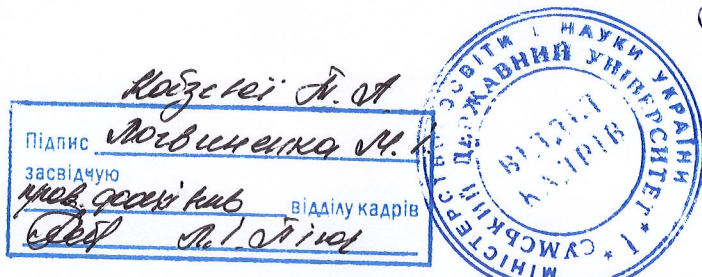 Т. А
Підпис Логвиненка М. І.
засвідчую
пров. фахівець відділу кадрів
МІНІСТЕРСТВО ОСВІТИ І НАУКИ УКРАЇНИ
* СУМСЬКИЙ ДЕРЖАВНИЙ УНІВЕРСИТЕТ * І
ВІДДІЛ
КАДРІВ